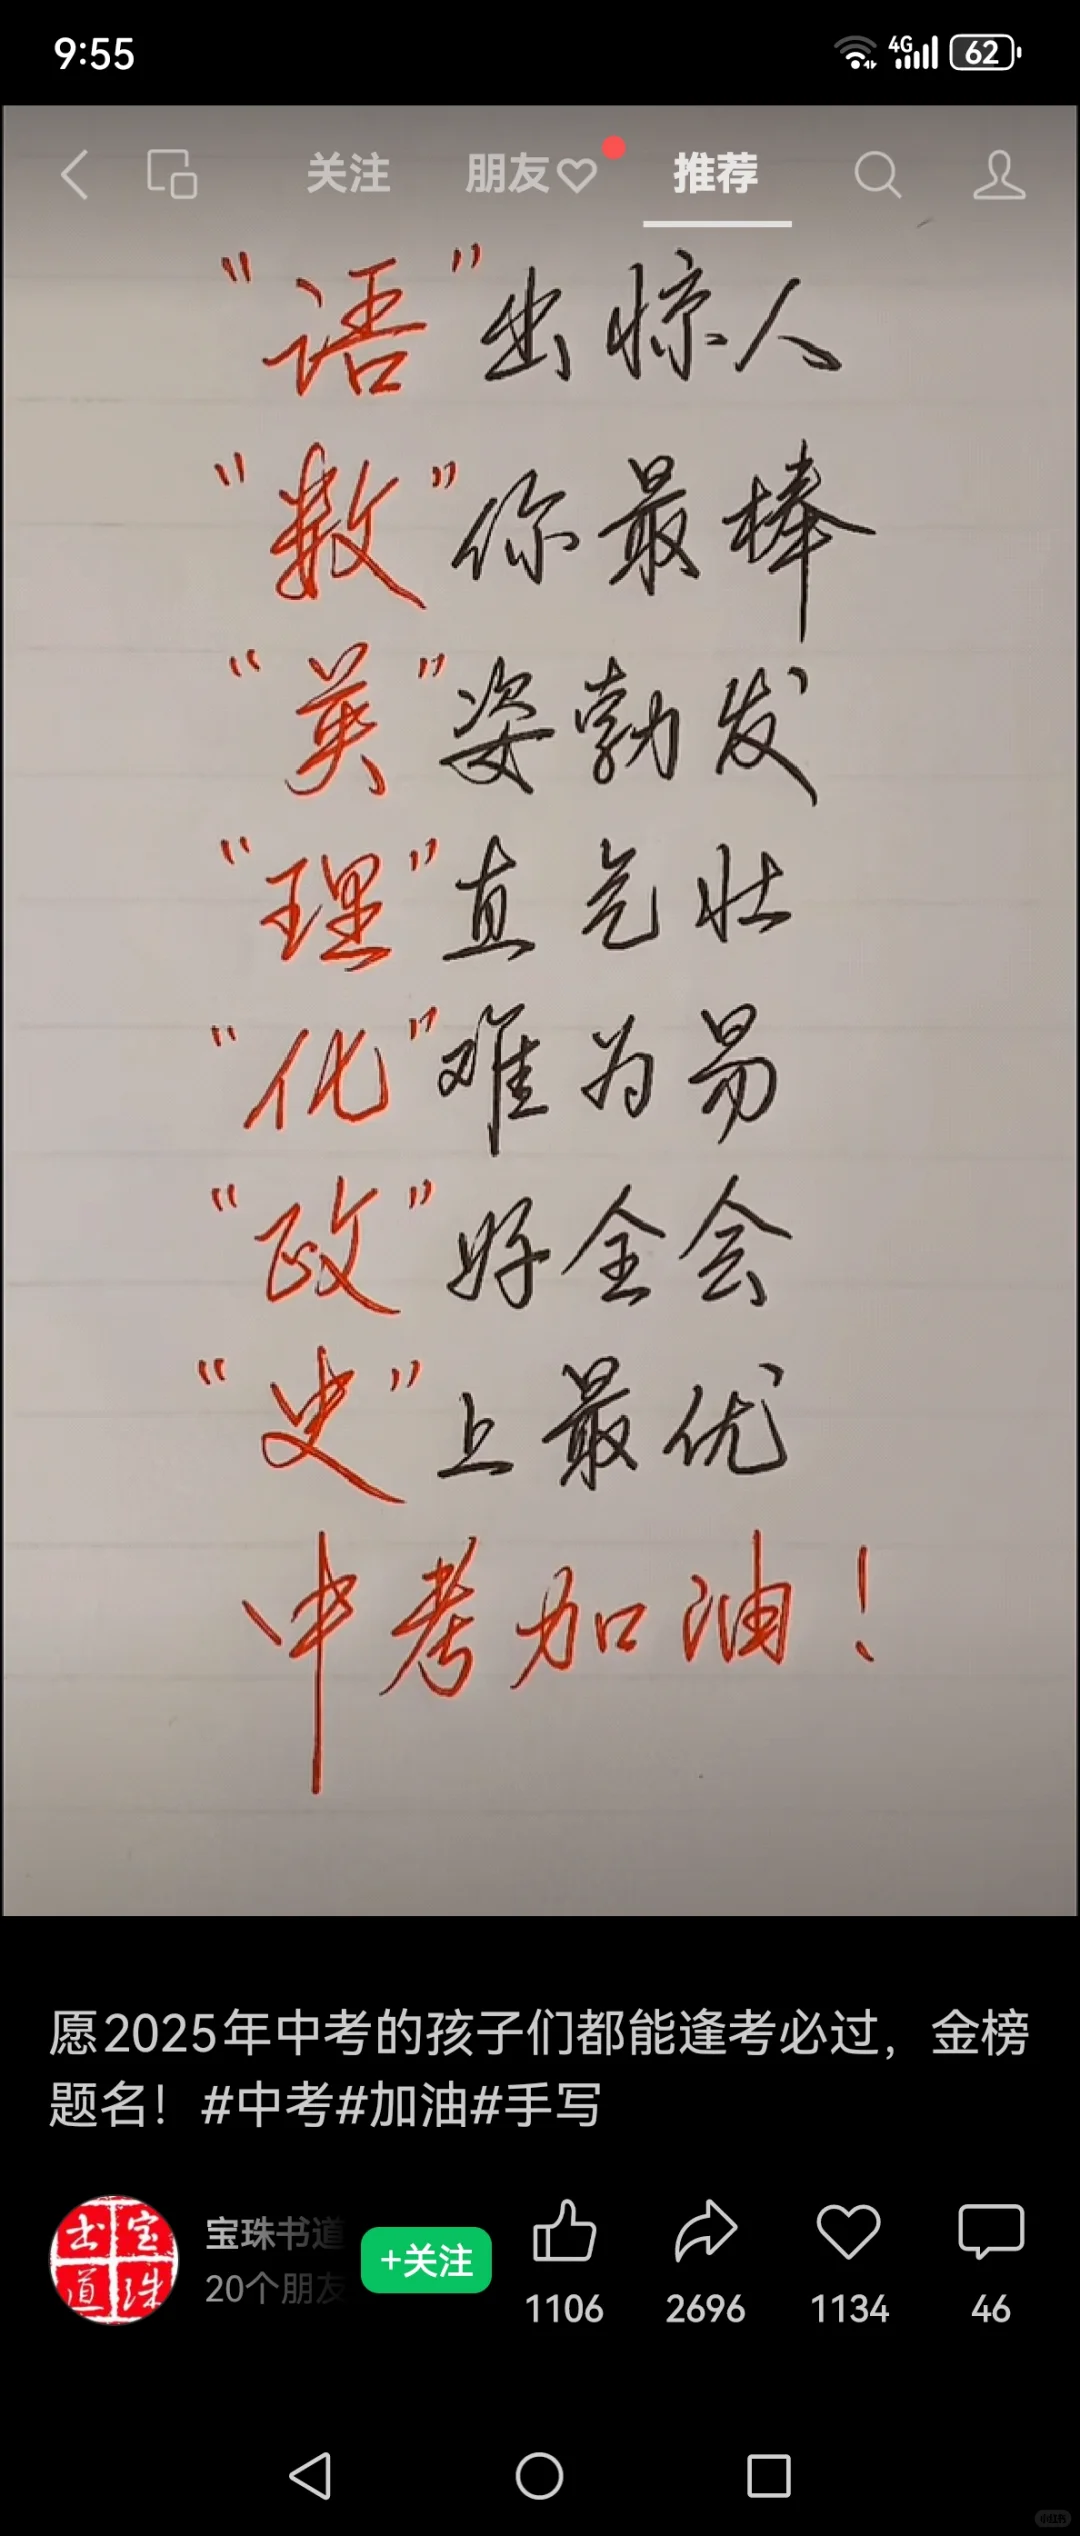 9:55
4G 62
关注 朋友 推荐
“语”出惊人
“数”你最棒
“英”姿勃发
“理”直气壮
“化”难为易
“政”好全会
“史”上最优
中考加油！
愿2025年中考的孩子们都能逢考必过，金榜
题名！#中考#加油#手写
宝珠书道
宝珠书道
20个朋友
+关注
1106 2696 1134 46
小红书